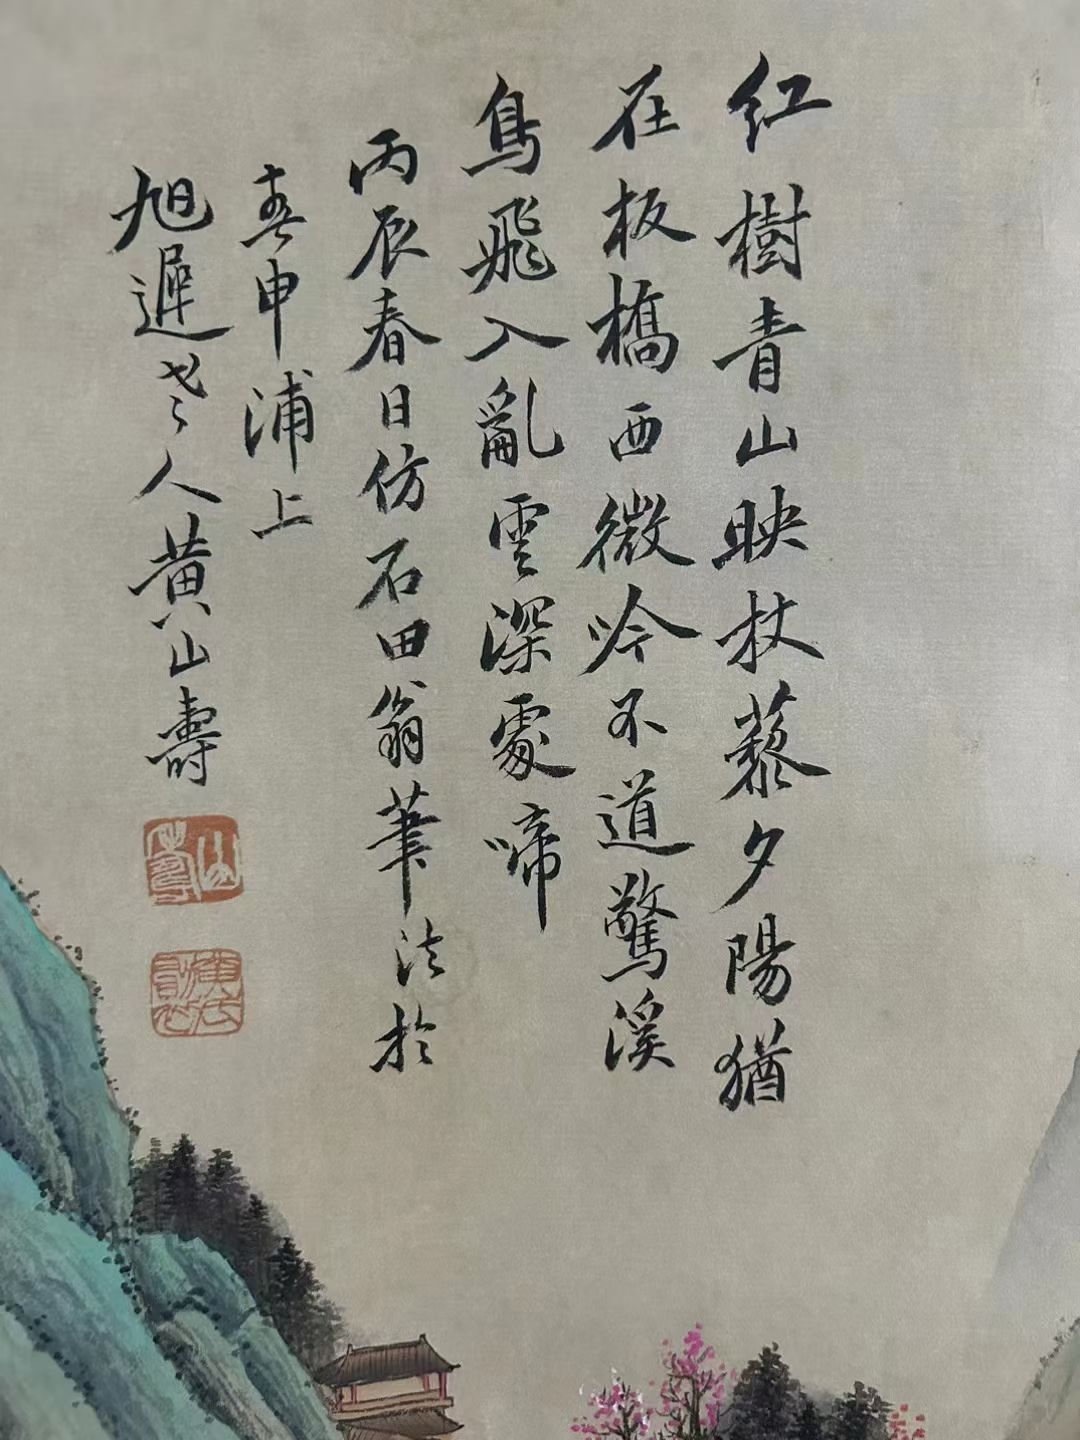 红樹青山映杖藜夕陽猶
在板橋西微吟不道驚溪
鳥飛入亂雲深處啼
丙辰春日仿石田翁筆法於
春申浦上
旭遲老人黄山壽
山壽